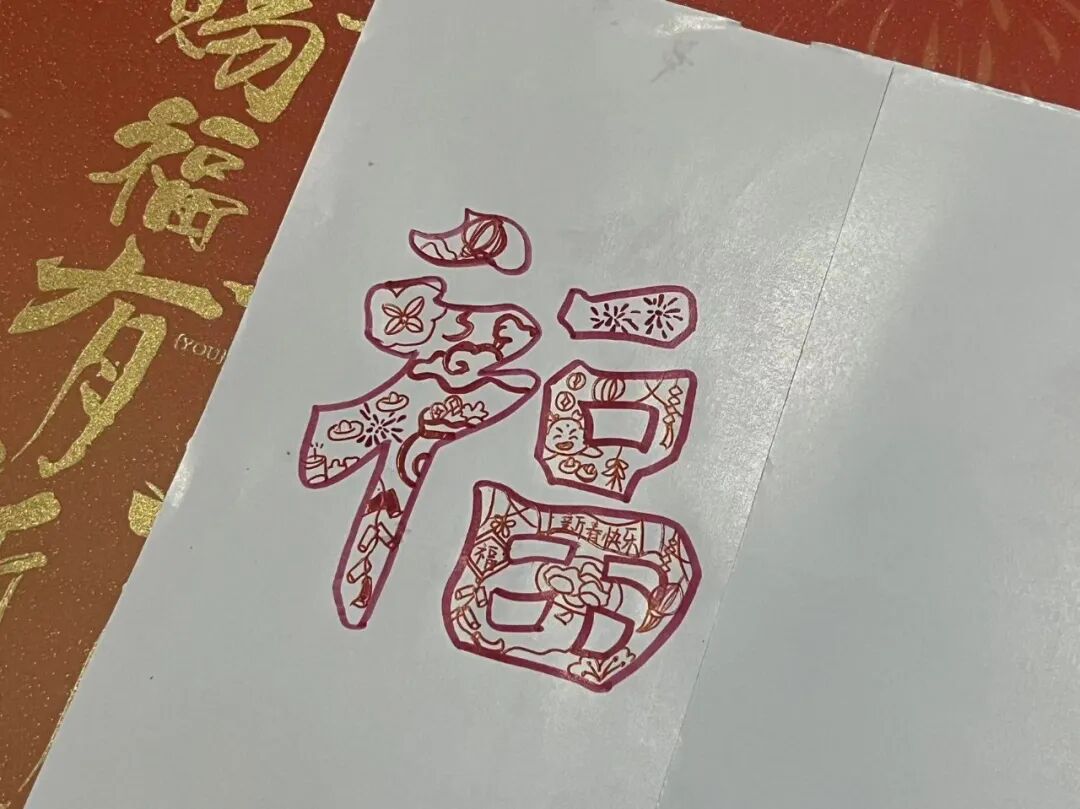 赐
福
有
(YOU)
福
新春快乐
福